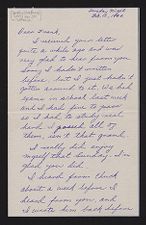 Sunday Night
Feb. 13, 1944
Dear Frank,
I received your letter
quite a while ago and was
very glad to hear from you.
Sorry I hadn't written
before but I just hadn't
gotten around to it. We did
exams in school last week
and I had five to pass
so I had to study real
hard. I passed all of
them, isn't that grand.
I really did enjoy
myself that Sunday. I'm
glad you did.
I heard from Chuck
about a week before I
heard from you and
I wrote him back before